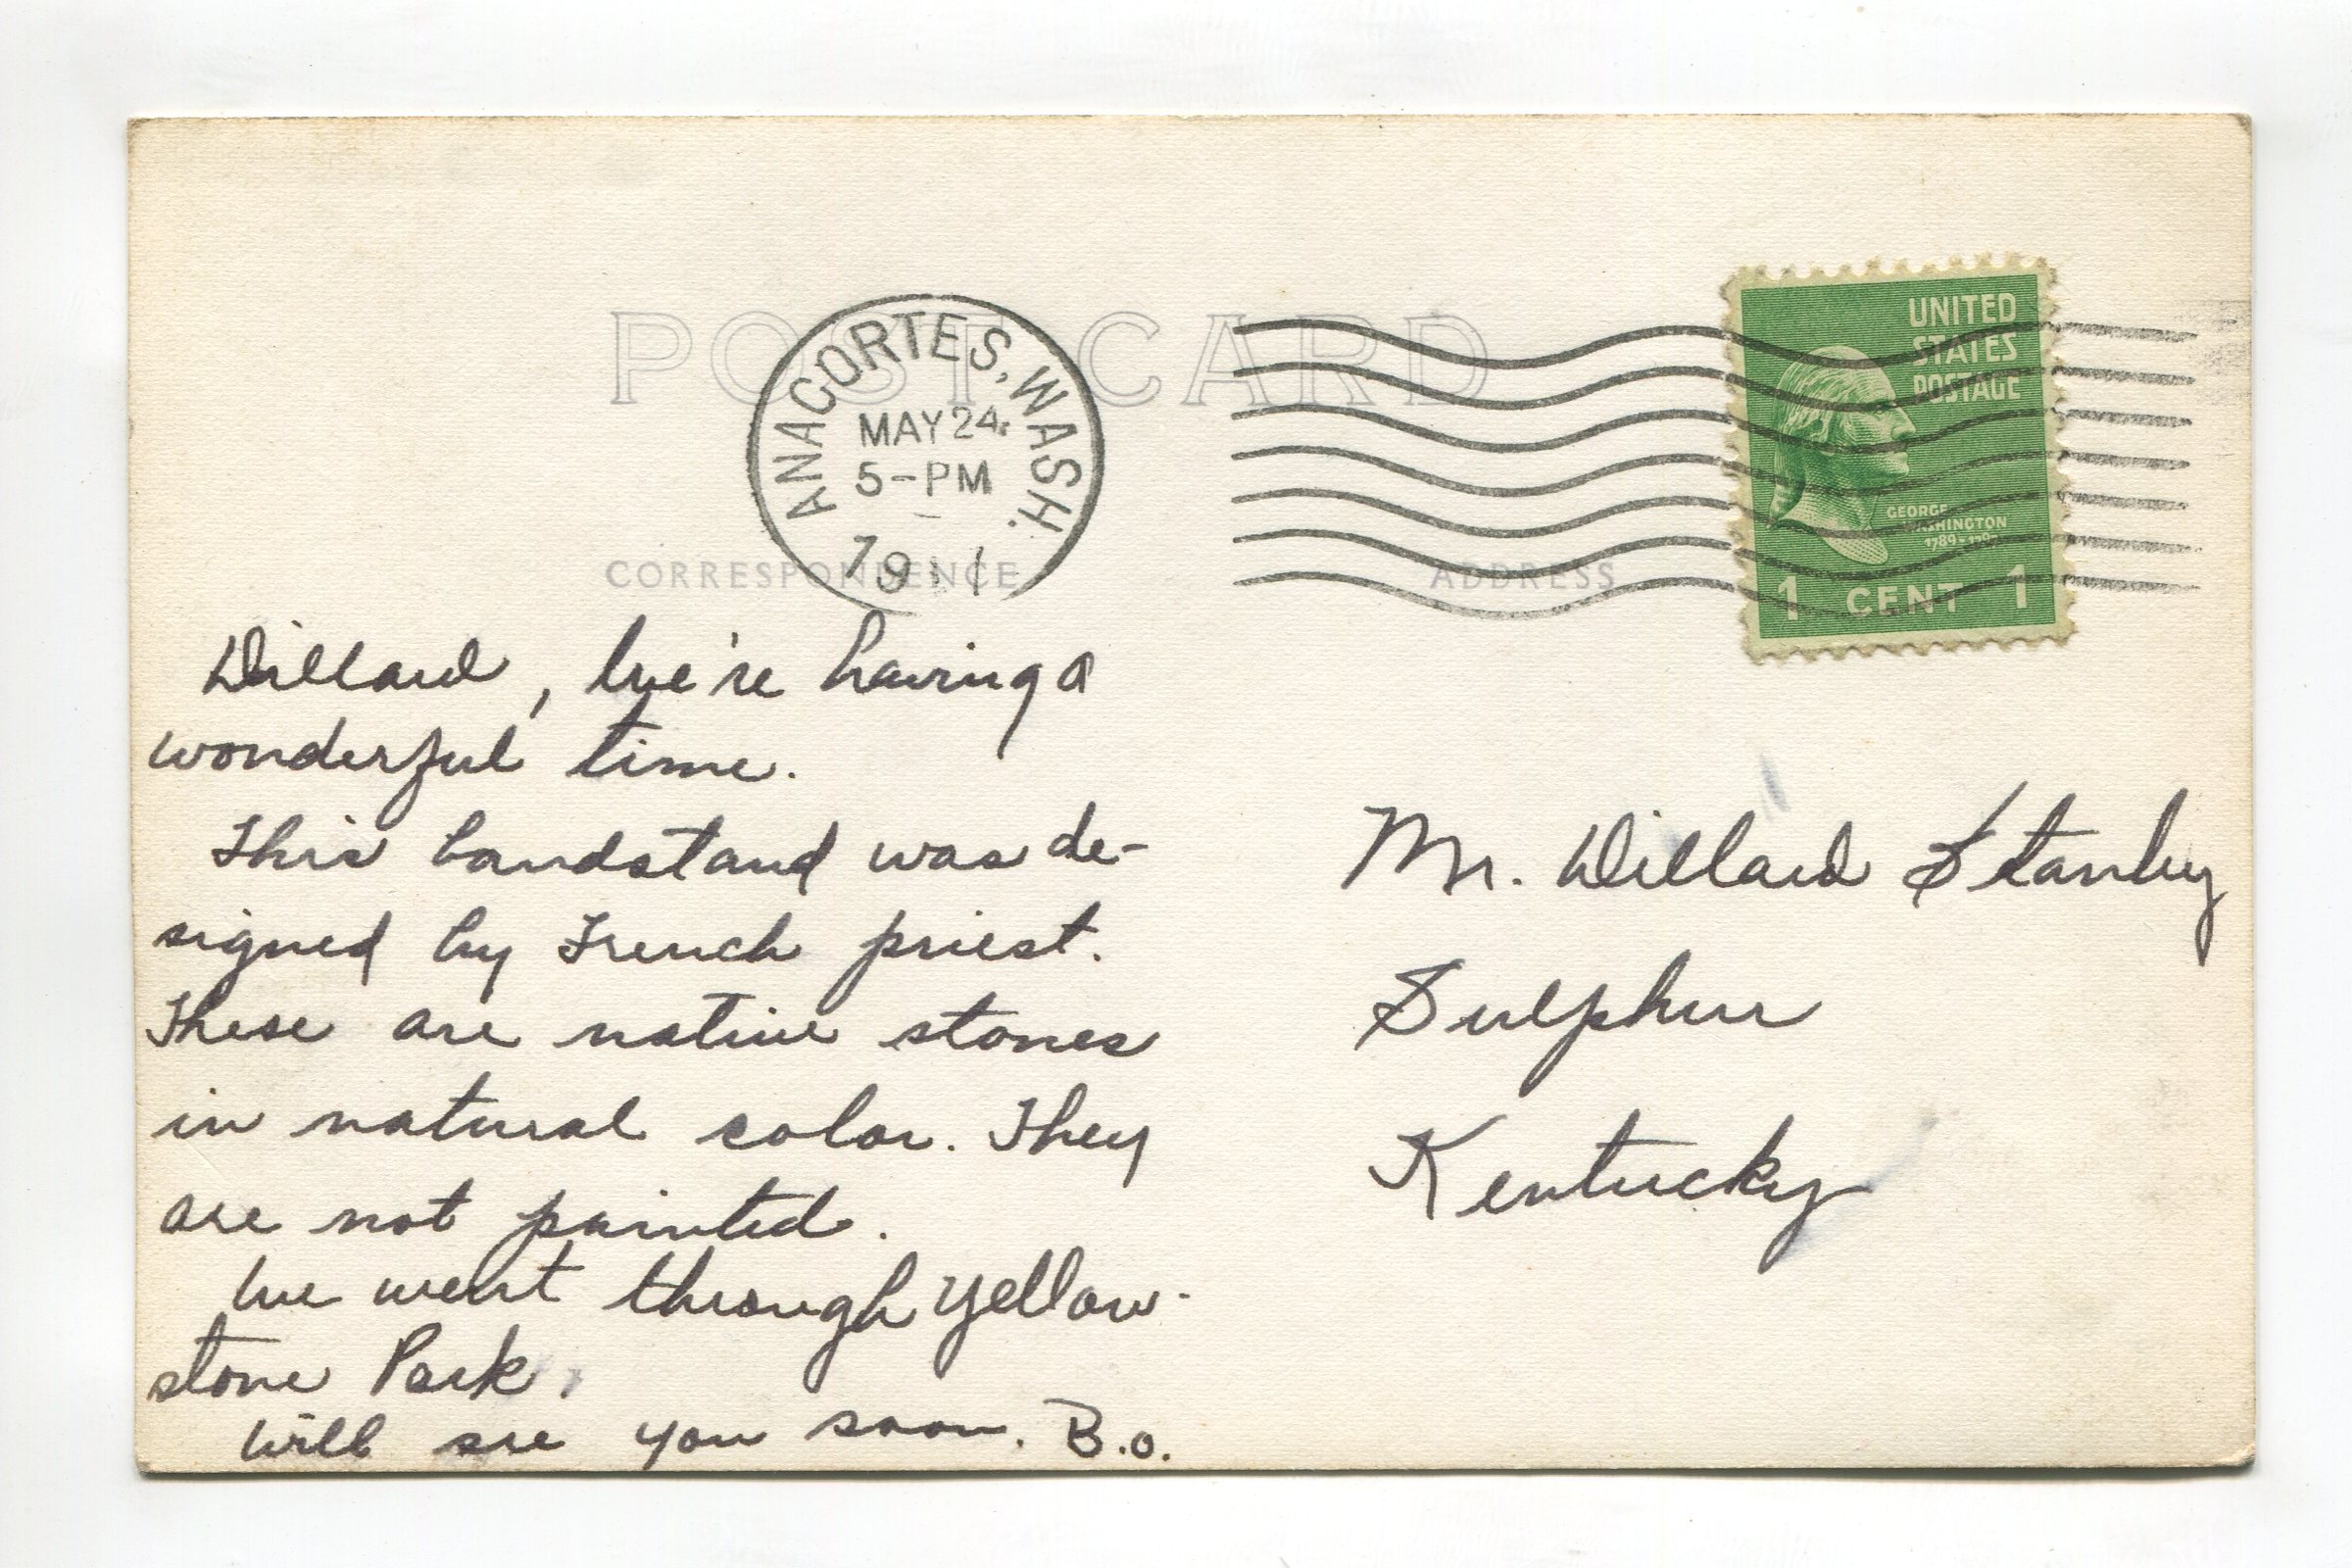 POST CARD
ANACORTES, WASH.
MAY 24
5-PM
UNITED
STATES
POSTAGE
GEORGE
WASHINGTON
1 CENT 1
CORRESPONDENCE
ADDRESS
Willard, We're having a
wonderful time.
This bandstand was de-
signed by French priest.
These are native stones
in natural color. They
are not painted.
We went through Yellow-
stone Park.
Will see you soon. B.O.
Mr. Willard Stanley
Sulphur
Kentucky